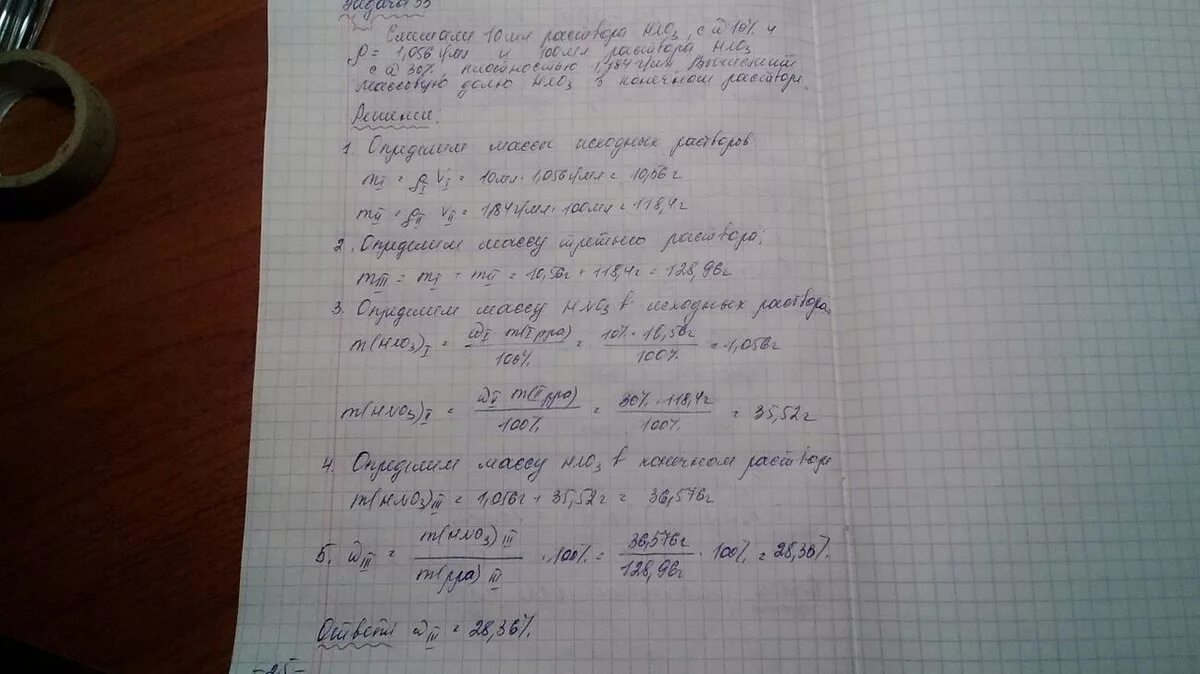 Задача 33
Смешали 10мл раствора HNO3 с ω 10% и
ρ = 1,056 г/мл и 100мл раствора HNO3
с ω 30% плотностью 1,184 г/мл. Вычислить
массовую долю HNO3 в конечном растворе.
Решение.
1. Определим массы исходных растворов
mI = ρI VI = 10мл · 1,056г/мл = 10,56 г
mII = ρII VII = 1,184г/мл · 100мл = 118,4г
2. Определим массу третьего раствора;
mIII = mI + mII = 10,56г + 118,4г = 128,96г
3. Определим массу HNO3 в исходных раствора
m(HNO3)I = ωI m(I рра) / 100% = 10% · 10,56г / 100% = 1,056г
m(HNO3)II = ωII m(II рра) / 100% = 30% · 118,4г / 100% = 35,52г
4. Определим массу HNO3 в конечном растворе
m(HNO3)III = 1,056г + 35,52г = 36,576г
5. ωIII = m(HNO3)III / m(рра)III · 100% = 36,576г / 128,96г · 100% = 28,36%.
Ответ: ωIII = 28,36%.
-25-